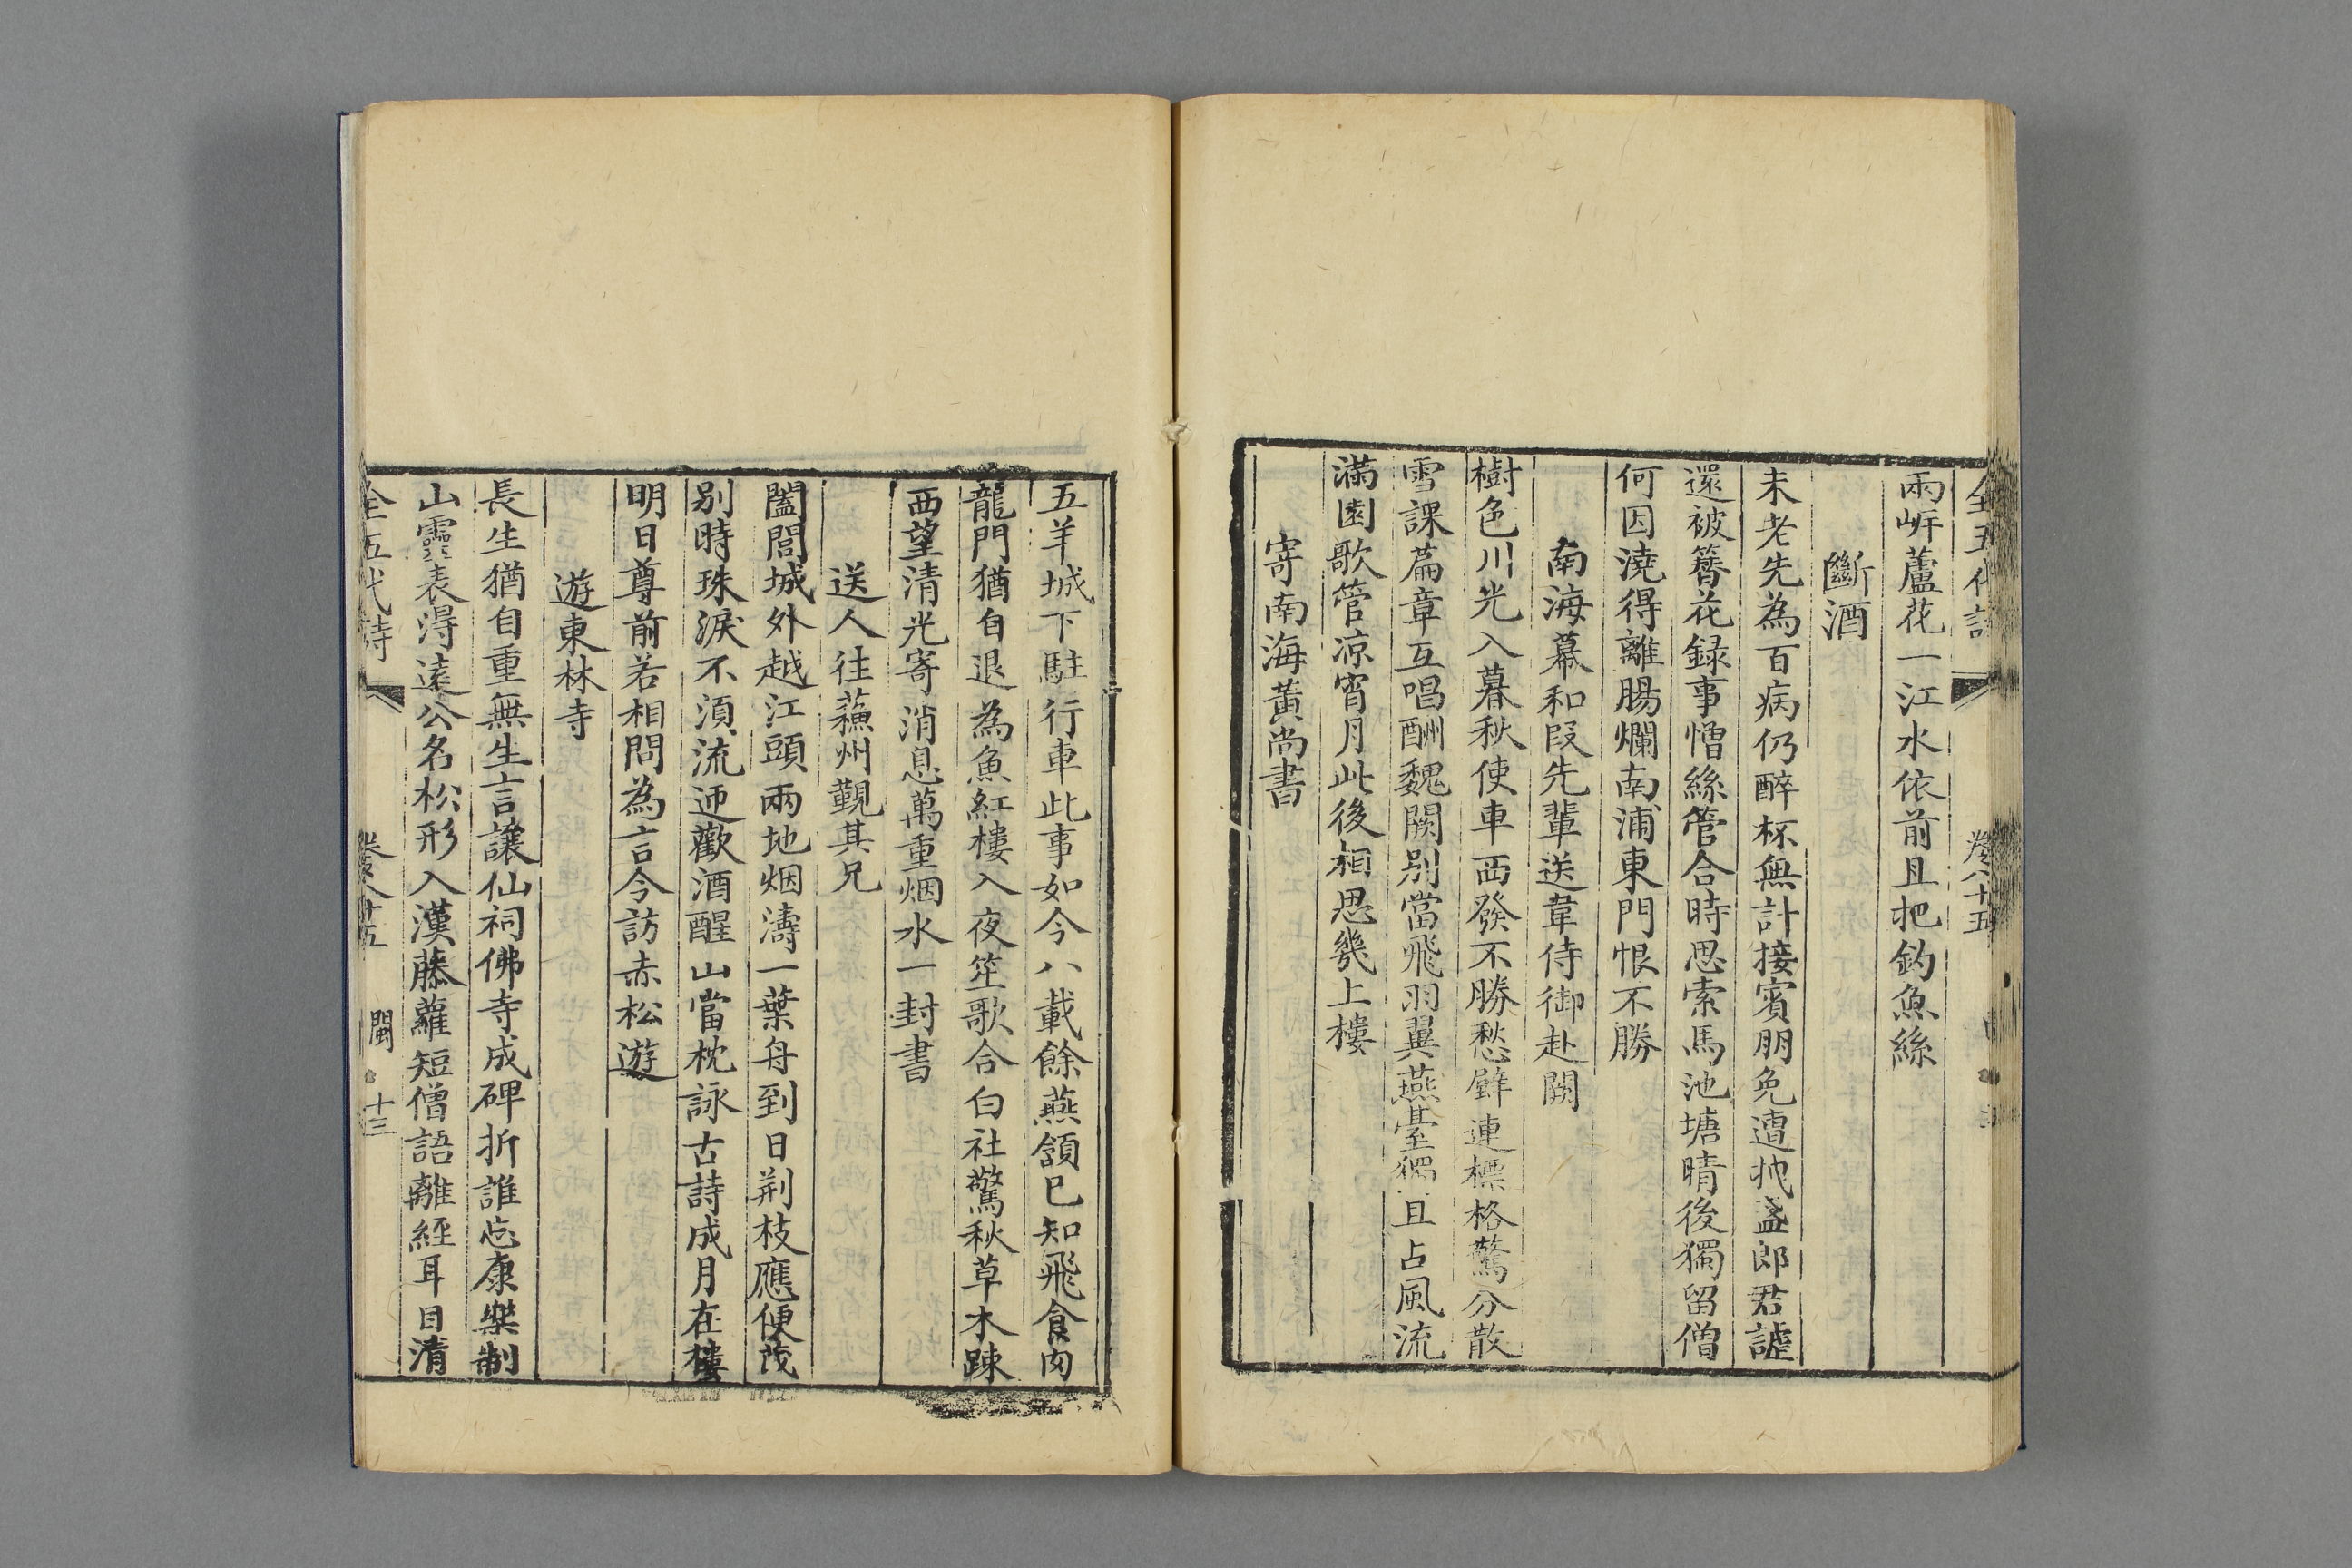 全五代詩 卷八十五
兩岍蘆花一江水依前且把釣魚絲
斷酒
未老先為百病仍醉杯無計接賓朋免遭拋盞郎君謔
還被簪花録事憎絲管合時思索馬池塘晴後獨留僧
何因澆得離腸爛南浦東門恨不勝
南海幕和段先輩送韋侍御赴闕
樹色川光入暮秋使車西發不勝愁璧連標格驚分散
雪課篇章互唱酬魏闕別當飛羽翼燕臺獨且占風流
滿園歌管凉宵月此後相思幾上樓
寄南海黃尚書
五羊城下駐行車此事如今八載餘燕頷已知飛食肉
龍門猶自退為魚紅樓入夜笙歌合白社驚秋草木踈
西望清光寄消息萬重烟水一封書
送人往蘓州覲其兄
闔閭城外越江頭兩地烟濤一葉舟到日荆枝應便茂
別時珠淚不湏流迊歡酒醒山當枕詠古詩成月在樓
明日尊前若相問為言今訪赤松遊
遊東林寺
長生猶自重無生言讓仙祠佛寺成碑折誰忘康樂制
山靈表得遠公名松形入漢藤蘿短僧語離經耳目清
全五代詩 卷八十五 閩 十三